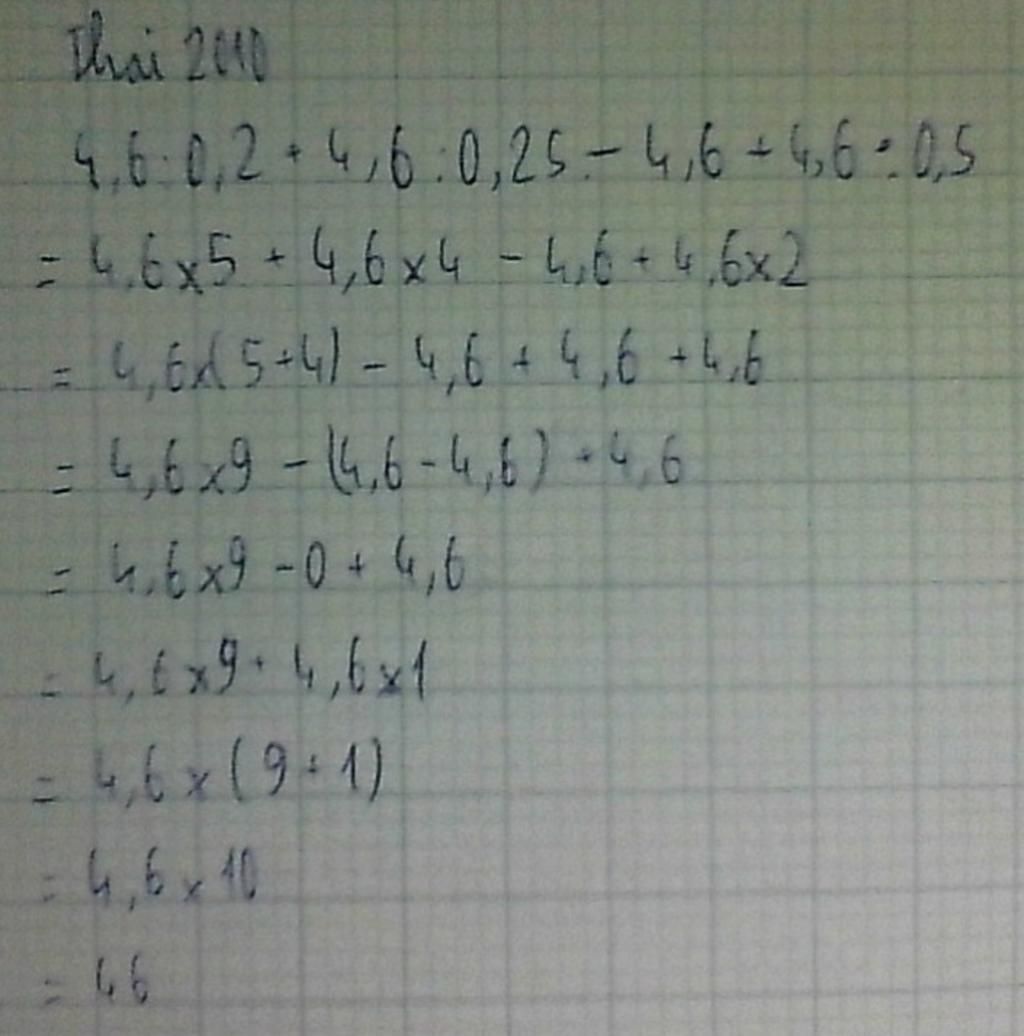 Thai 2010
4,6 : 0,2 + 4,6 : 0,25 - 4,6 + 4,6 : 0,5
= 4,6 x 5 + 4,6 x 4 - 4,6 + 4,6 x 2
= 4,6 x (5 + 4) - 4,6 + 4,6 + 4,6
= 4,6 x 9 - (4,6 - 4,6) + 4,6
= 4,6 x 9 - 0 + 4,6
= 4,6 x 9 + 4,6 x 1
= 4,6 x (9 + 1)
= 4,6 x 10
= 46